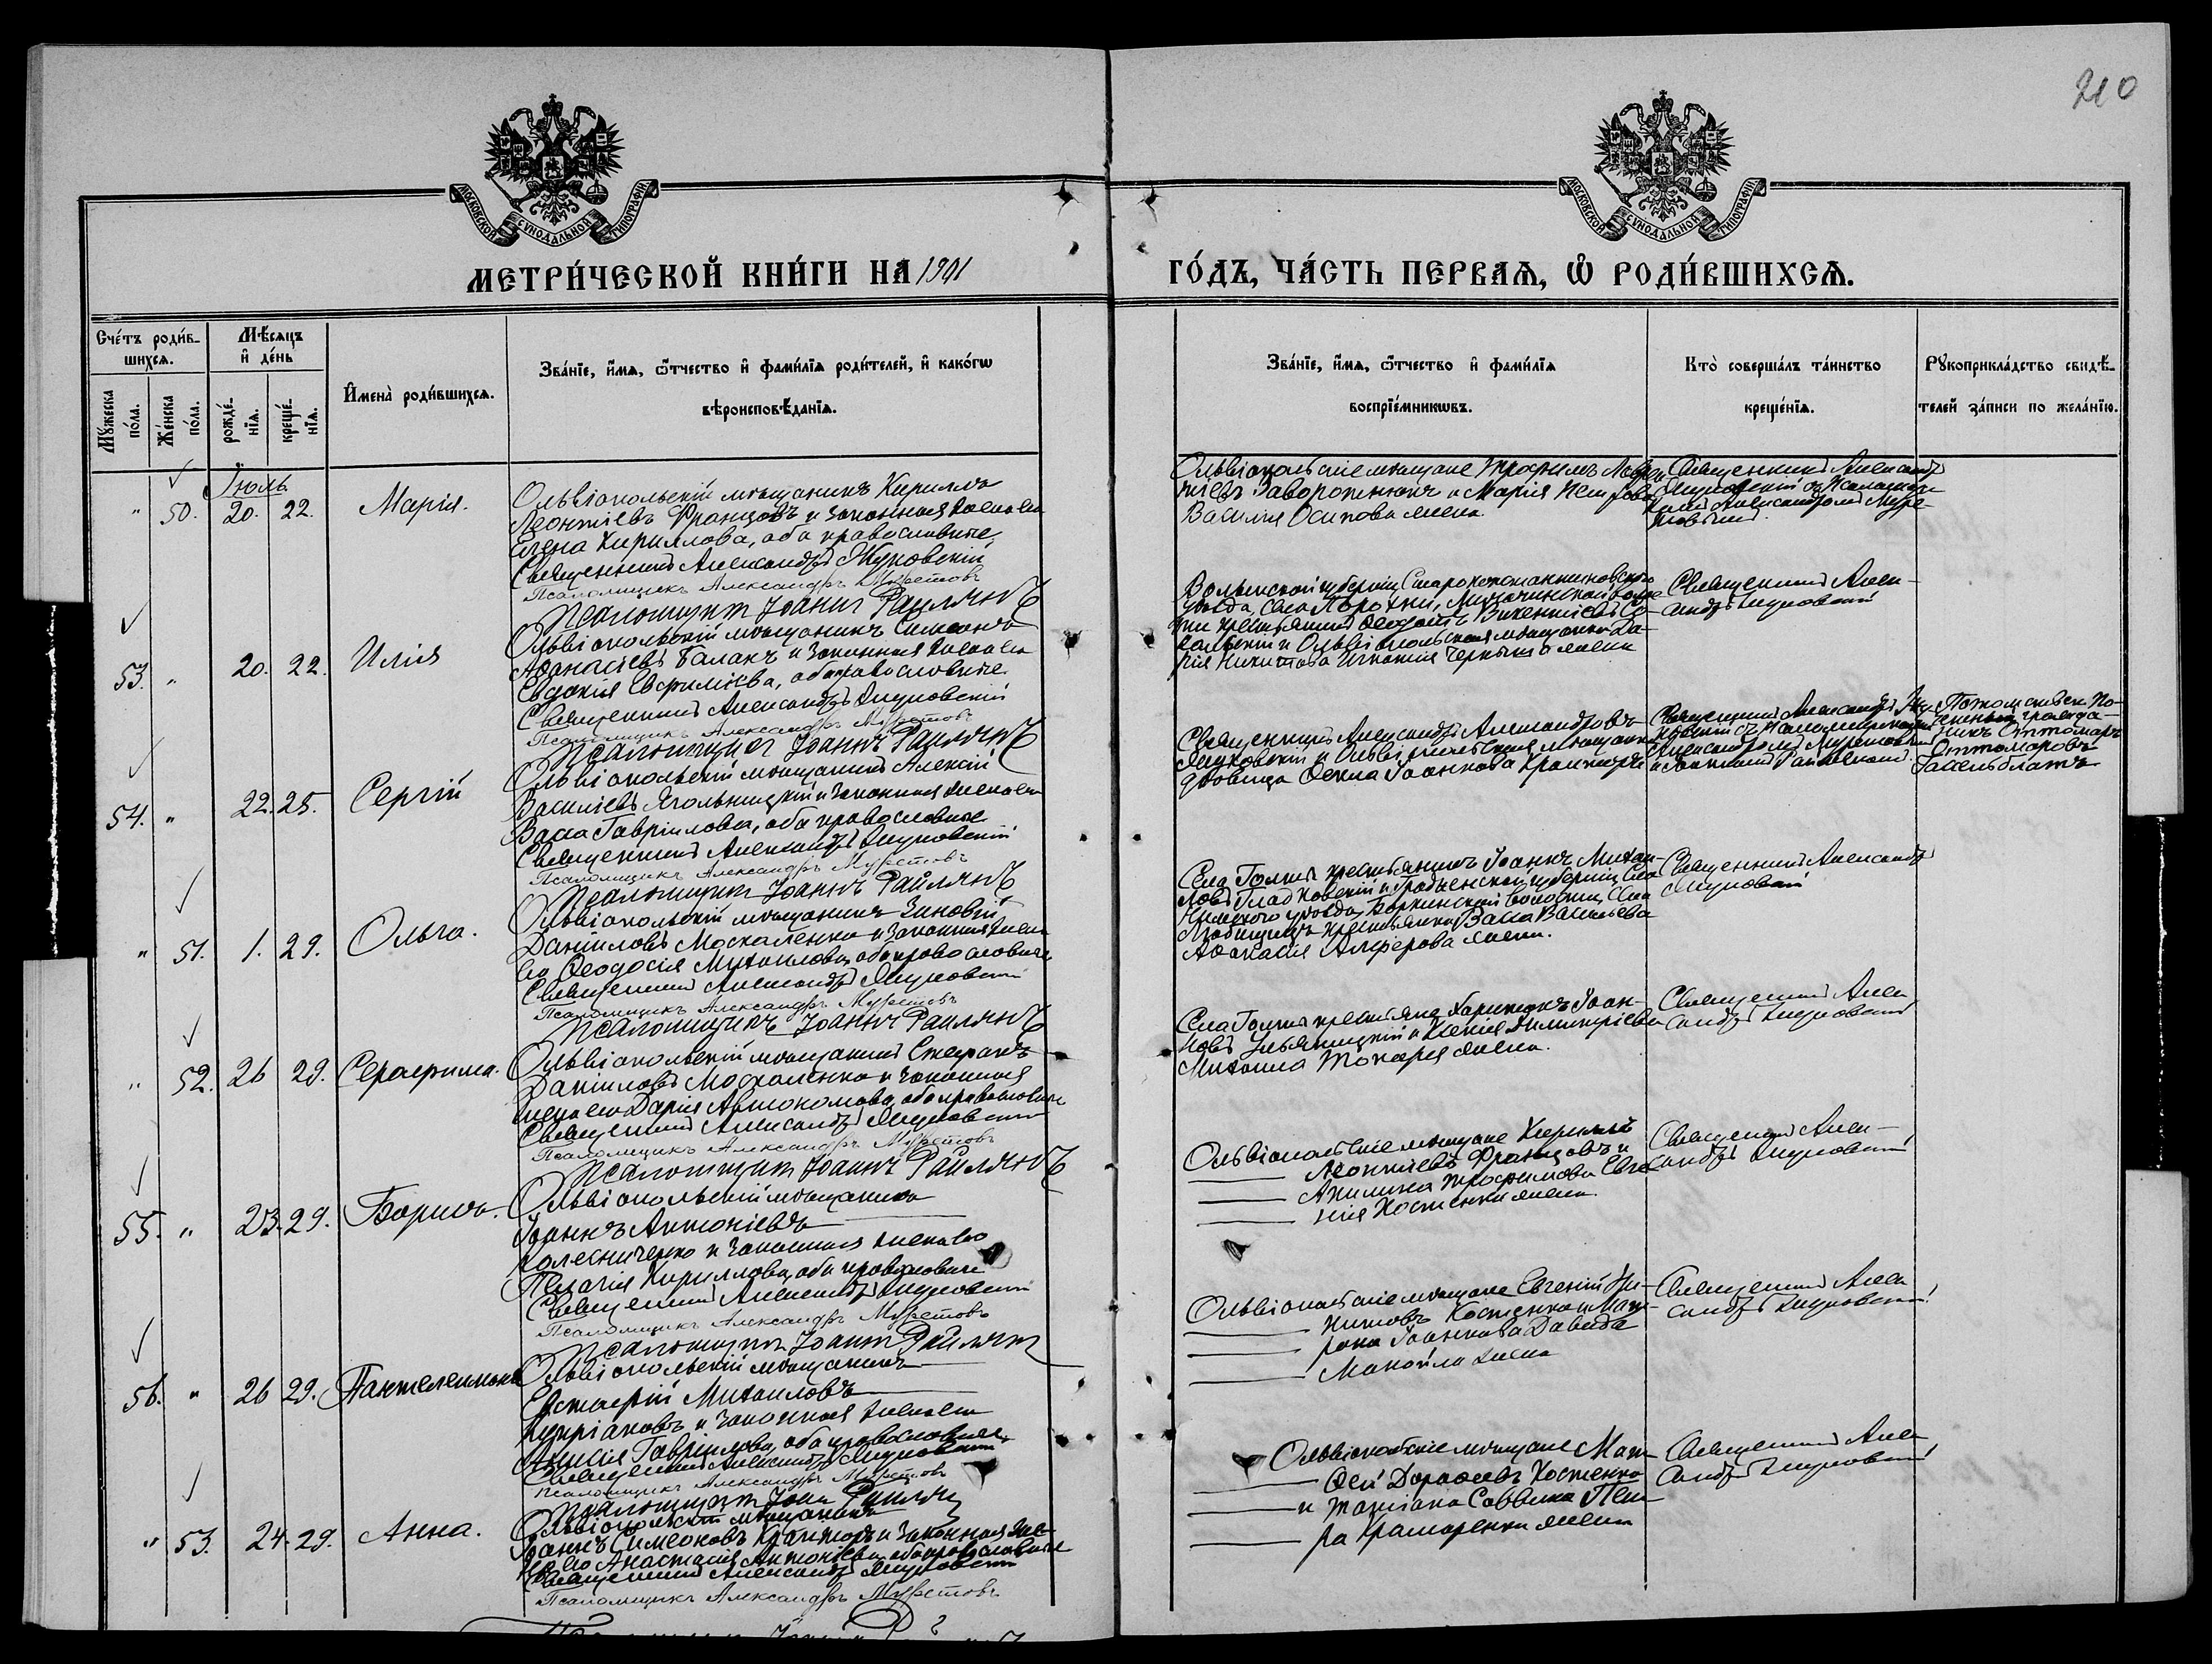 210
МОСКОВСКОЙ СѴНОДАЛЬНОЙ ТИПОГРАФІИ.
МОСКОВСКОЙ СѴНОДАЛЬНОЙ ТИПОГРАФІИ.
МЕТРИ́ЧЕСКОЙ КНИ́ГИ НА 1901
ГО́ДЪ, ЧА́СТЬ ПЕРВАЯ, Ѡ РОДИ́ВШИХСЯ.
Сче́тъ роди́в-
шихся.
Мꙋжеска по́ла.
Же́нска по́ла.
Мѣ́сяцъ
и҆ де́нь
рожде́-
нїя.
креще́-
нїя.
И҆мена̀ роди́вшихся.
Зва́нїе, и҆́мя, ѻ҆́тчество и҆ фами́лїя роди́телей, и҆ како́гѡ
вѣроисповѣ́данїя.
Зва́нїе, и҆́мя, ѻ҆́тчество и҆ фами́лїя
воспрїе́мникѡвъ.
Кто̀ соверша́лъ та́инство
креще́нїя.
Рꙋкоприкла́дство свидѣ́-
телей за́писи по жела́нїю.
Іюль
" 50. 20. 22. Марія.
Ольвіопольскій мѣщанинъ Кириллъ
Леонтіевъ Францовъ и законная жена его
Елена Кириллова, оба православные
Священникъ Александръ Жуковскій
Псаломщикъ Александръ Муретовъ
Псаломщикъ Іоаннъ Райлянъ
Ольвіопольскіе мѣщане Трофимъ
Заворотнюкъ и Марія Петрова
Василія Осипова жена.
Священникъ Александръ
Жуковскій съ псаломщи-
комъ Александромъ Муре-
товымъ.
53. " 20. 22. Илія
Ольвіопольскій мѣщанинъ Симеонъ
Аѳанасіевъ Балакъ и законная жена его
Евдокія Евфиміева, оба православные
Священникъ Александръ Жуковскій
Псаломщикъ Александръ Муретовъ
Псаломщикъ Іоаннъ Райлянъ
Волынской губерніи Староконстантиновскаго
уѣзда, села
крестьянинъ Ѳеодоръ Викентіевъ
и Ольвіопольская мѣщанка Да-
рія Никитова Игнатія Черныша жена
Священникъ Алек-
сандръ Жуковскій
54. " 22. 25. Сергій
Ольвіопольскій мѣщанинъ Алексій
Василіевъ Ягольницкій и законная жена его
Васса Гавріилова, оба православные
Священникъ Александръ Жуковскій
Псаломщикъ Александръ Муретовъ
Псаломщикъ Іоаннъ Райлянъ
Священникъ Александръ Александровъ
Жуковскій и Ольвіопольская мѣщанка
вдовица Іоаннова
Священникъ Александръ Жу-
ковскій съ псаломщиками
Александромъ Муретовымъ
и Іоанномъ Райляномъ.
Потомствен. По-
четный гражда-
нинъ Оттомаръ
Оттомаровъ
Гасельблатъ
" 51. 1. 29. Ольга.
Ольвіопольскій мѣщанинъ Зиновій
Даниловъ Москаленко и законная жена
его Ѳеодосія Михаилова, оба православные
Священникъ Александръ Жуковскій
Псаломщикъ Александръ Муретовъ
Псаломщикъ Іоаннъ Райлянъ
Села Голты крестьянинъ Іоаннъ Михаи-
ловъ Гладковскій и Гродненской губерніи
уѣзда, волости, села
крестьянка Васса Васильева
Аѳанасія Алферова жена.
Священникъ Александръ
Жуковскій
" 52. 26 29. Серафима.
Ольвіопольскій мѣщанинъ Стефанъ
Даниловъ Москаленко и законная
жена его Дарія Автономова, оба православные
Священникъ Александръ Жуковскій
Псаломщикъ Александръ Муретовъ
Псаломщикъ Іоаннъ Райлянъ
Села Голты крестьяне Харитонъ Іоан-
новъ Ульяницкій и Ксенія Димитріева
Михаила Токаря жена.
Священникъ Алек-
сандръ Жуковскій
55. " 23. 29. Борисъ.
Ольвіопольскій мѣщанинъ
Іоаннъ Антоніевъ
Колесниченко и законная жена его
Пелагія Кириллова, оба православные
Священникъ Александръ Жуковскій
Псаломщикъ Александръ Муретовъ
Псаломщикъ Іоаннъ Райлянъ
Ольвіопольскіе мѣщане Кириллъ
Леонтіевъ Францовъ и
Акилина Трофимова Евге-
нія Костенка жена.
Священникъ Алек-
сандръ Жуковскій
56. " 26 29. Пантелеимонъ
Ольвіопольскій мѣщанинъ
Евстафій Михаиловъ
Купріановъ и законная жена его
Анисія Гавріилова, оба православные
Священникъ Александръ Жуковскій
Псаломщикъ Александръ Муретовъ
Псаломщикъ Іоаннъ Райлянъ
Ольвіопольскіе мѣщане Евгеній Ни-
китовъ Костенко и Мат-
рона Іоаннова Давида
Манойла жена
Священникъ Алек-
сандръ Жуковскій
" 53. 24. 29. Анна.
Ольвіопольскій мѣщанинъ
Іоаннъ Симеоновъ и законная же-
на его Анастасія Антоніева, оба православные
Священникъ Александръ Жуковскій
Псаломщикъ Александръ Муретовъ
Ольвіопольскіе мѣщане Мат-
ѳей Дороѳеевъ Костенко
и Татіана Саввина Пет-
ра Крамаренки жена
Священникъ Алек-
сандръ Жуковскій